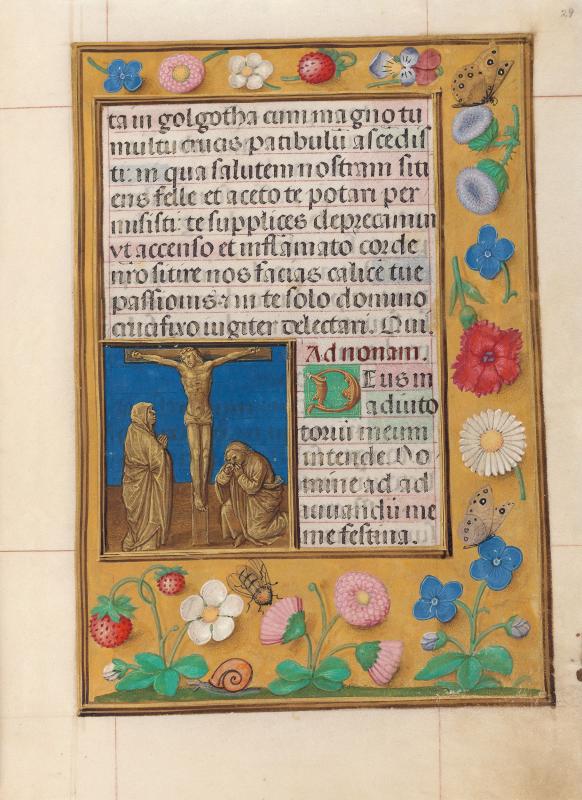 29
ta in golgotha cum magno tu
multu crucis patibulū ascēdis
ti: in qua salutem nostram siti
ens felle et aceto te potari per
misisti: te supplices deprecamur
vt accenso et inflamato corde
nr̄o sitire nos facias calicē tue
passionis: in te solo domino
crucifixo iugiter delectari. Qui.
Ad nonam.
Deus in
adiuto
toriū meum
intende. Do
mine ad ad
iuuandū me
me festina.